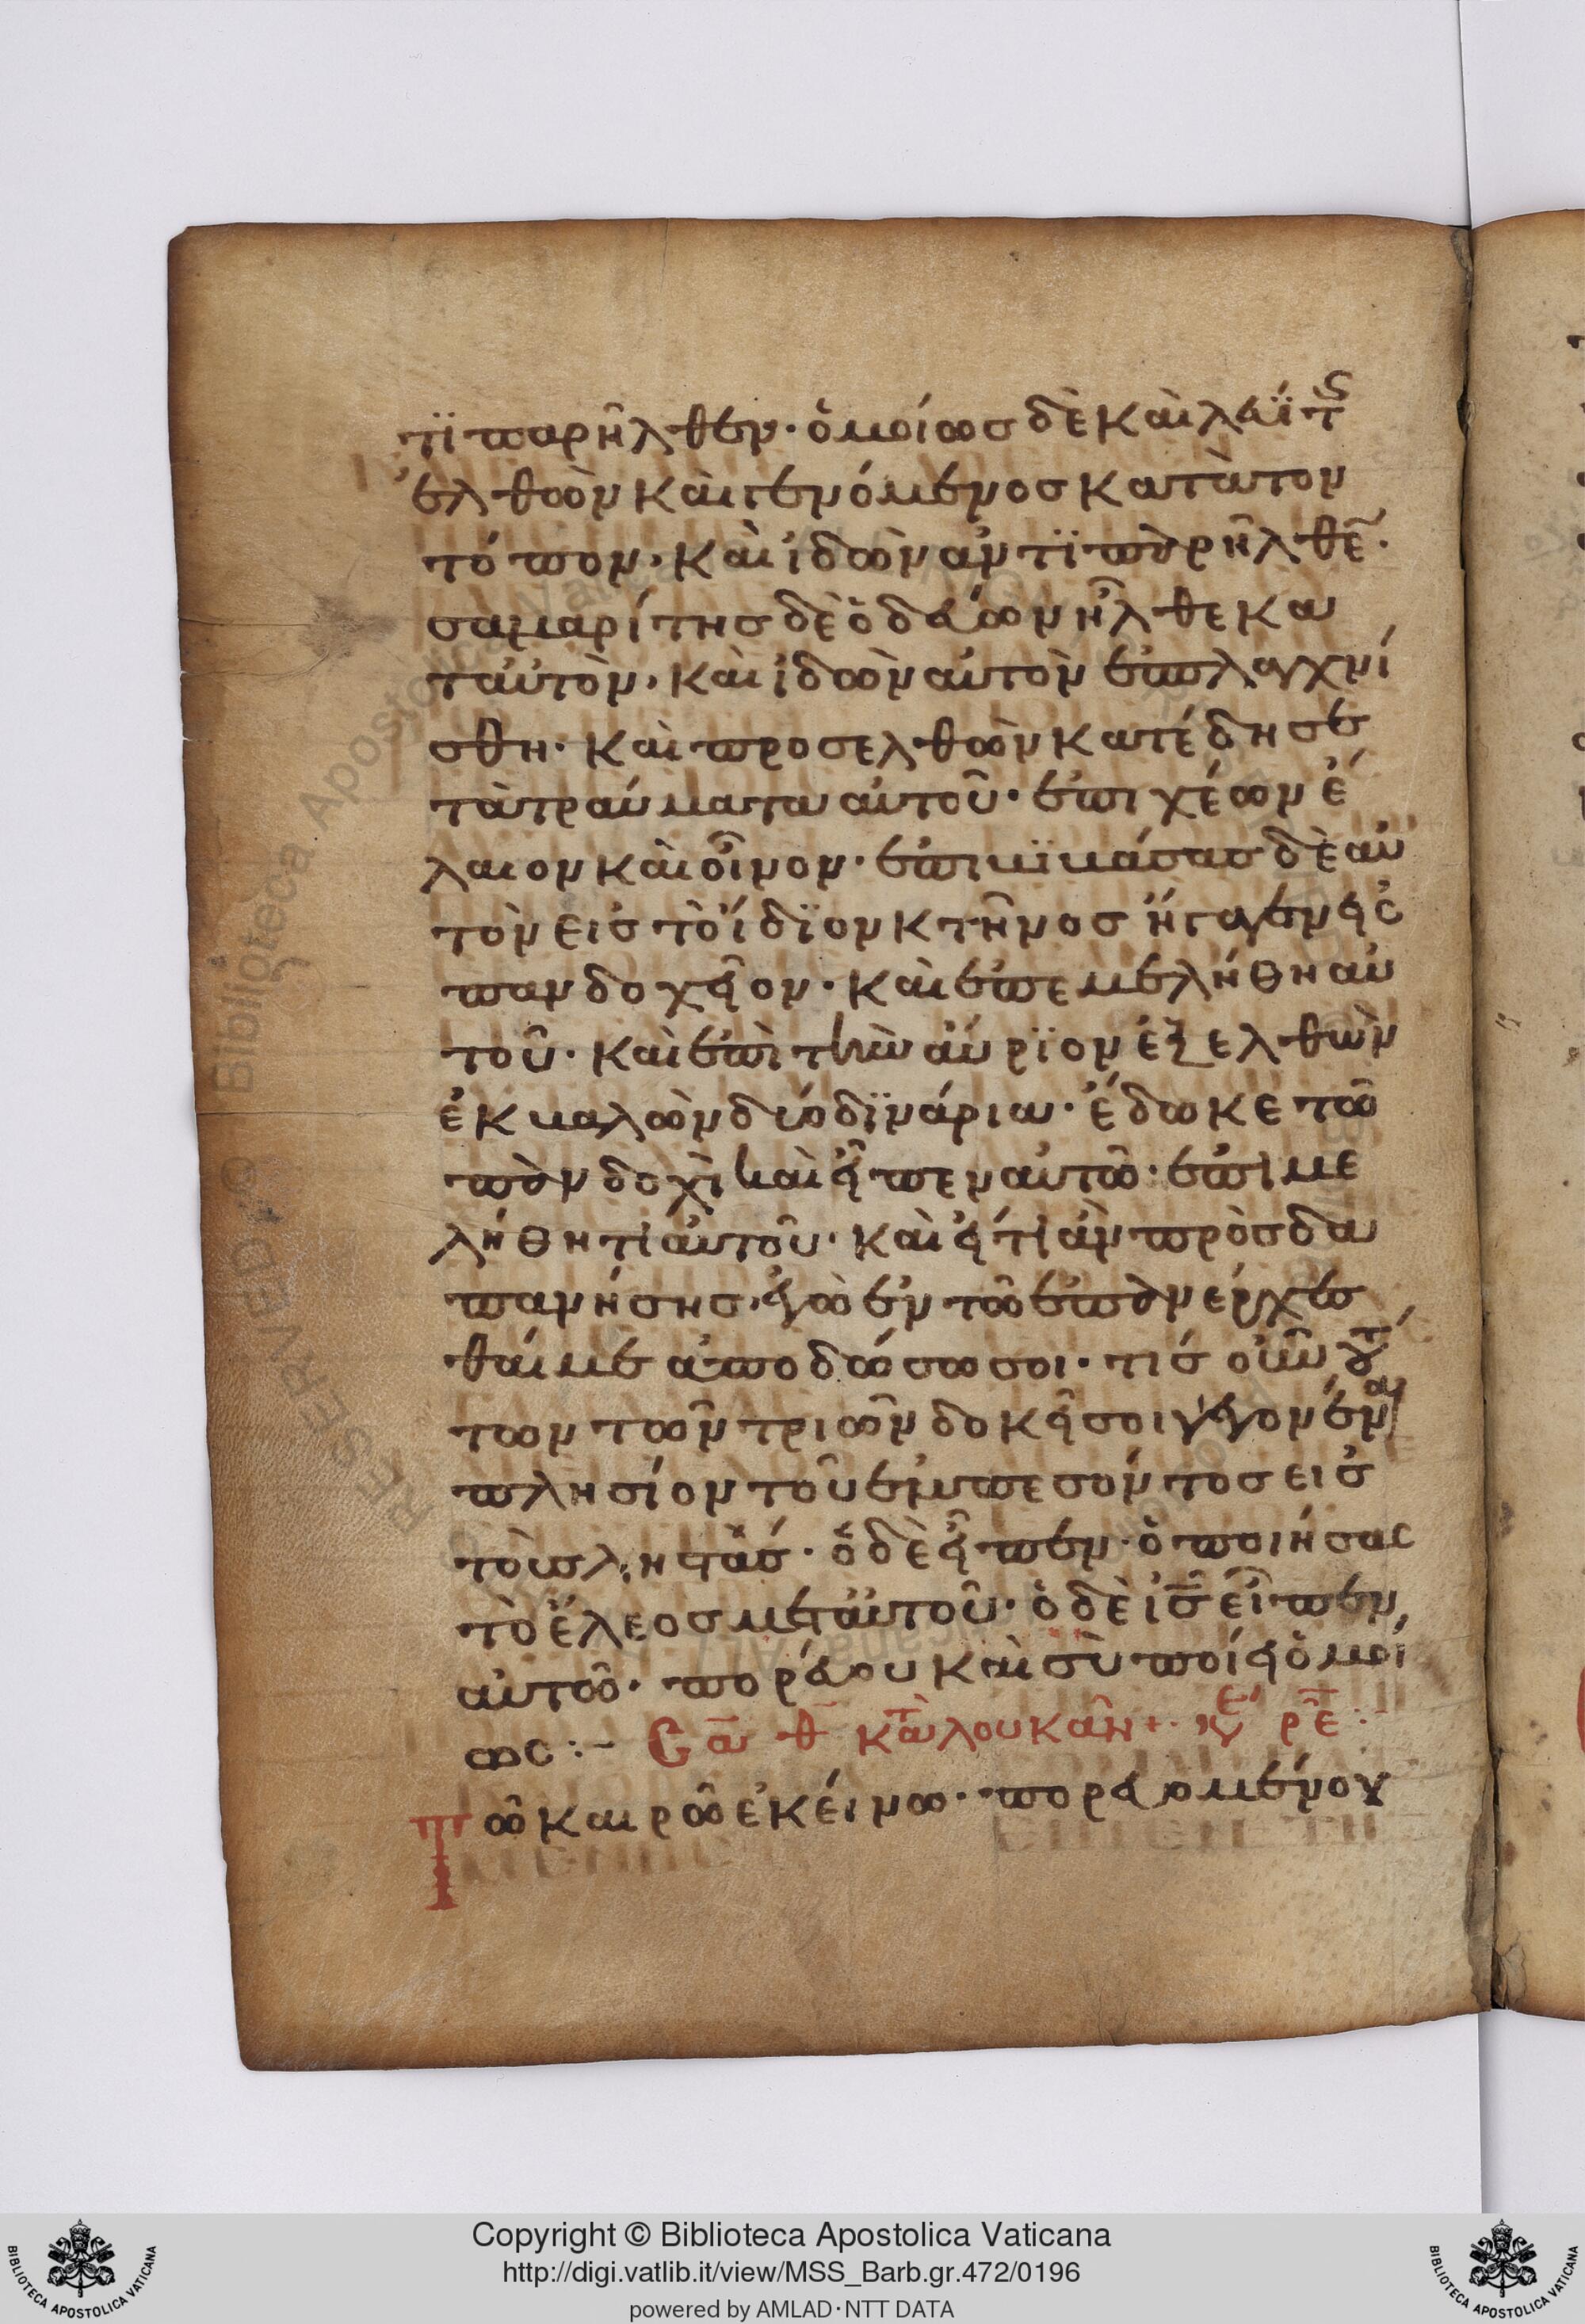 τϊπαρῆλθεν· ὁμοίωσ δὲ καὶ λευΐτσ
ἐλθὼν καὶ γενόμενοσ κατὰ τὸν
τόπον, καὶ ἰδὼν ἀντϊπαρῆλθε̃·
σαμαρίτησ δὲ ὁδεύων ἦλθε κα
τ αὐτὸν, καὶ ἰδὼν αὐτὸν ἐσπλαγχνί
σθη· καὶ προσελθὼν κατέδησε
τὰ τραύματα αὐτοῦ· ἐπιχέων ἔ
λαιον καὶ οἶνον· ἐπιβϊβάσασ δὲ αὐ
τὸν εἰσ τὸ ἴδϊον κτῆνοσ ἤγαγεν εἰσ
πανδοχεῖον· καὶ ἐπεμελήθη αὐ
τοῦ· καὶ ἐπὶ τὴν αὔρϊον ἐξελθὼν
ἐκβαλὼν δύο δϊνάρια· ἔδωκε τῶ
πανδοχεῖ καὶ εἶπεν αὐτῶ· ἐπιμε
λήθητι αὐτοῦ· καὶ εἴ τι ἂν προσδα
πανήσησ, ἐγὼ ἐν τῶ ἐπανέρχεσ
θαί με ἀποδώσω σοι· τίσ οὖν τού
των τῶν τριῶν δοκεῖ σοι γεγονέναι
πλησίον τοῦ ἐμπεσόντοσ εἰσ
τοὺσ ληστάσ· ὁ δὲ εἶπεν· ὁ ποιήσασ
τὸ ἔλεοσ μετ αὐτοῦ· ὁ δὲ ι̅σ̅ εἶπεν
αὐτῶ· πορεύου καὶ σὺ ποίει ὁμοί
ωσ :– Σα θ̅ κατὰ λουκᾶν +
Τῶ καιρῶ ἐκείνω· πορευομένου
Copyright © Biblioteca Apostolica Vaticana
http://digi.vatlib.it/view/MSS_Barb.gr.472/0196
powered by AMLAD·NTT DATA
BIBLIOTECA APOSTOLICA VATICANA
BIBLIOTECA APOSTOLICA VATICANA